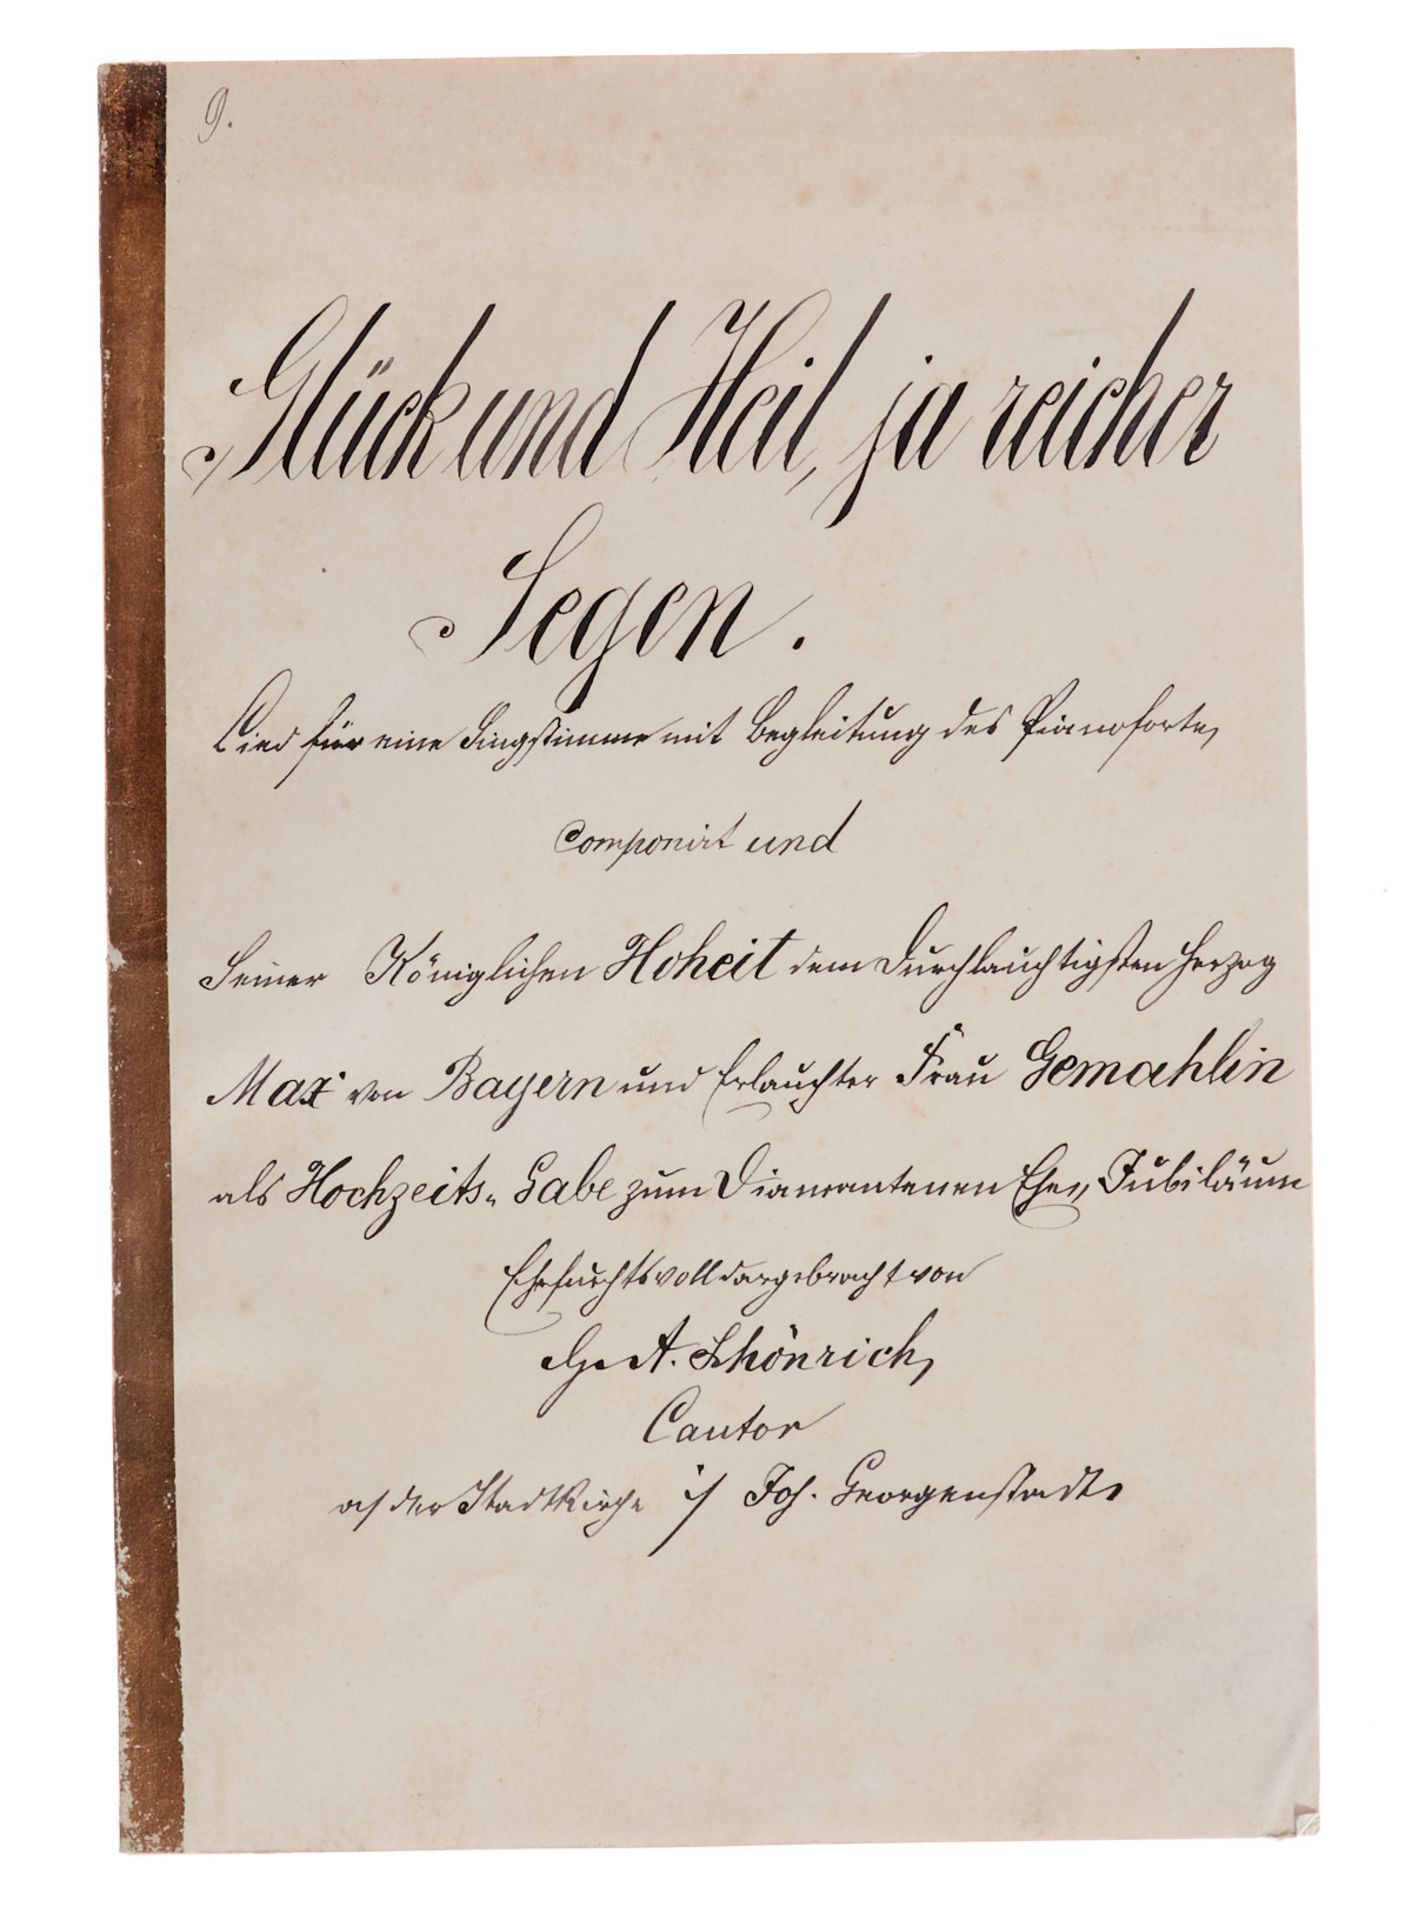 9.
Glück und Heil, ja reicher
Segen.
Lied für eine Singstimme mit Begleitung des Pianoforte,
componirt und
Seiner Königlichen Hoheit dem Durchlauchtigsten Herzog
Max von Bayern und Erlauchter Frau Gemahlin
als Hochzeits- Gabe zum Diamantenen Ehe-, Jubiläum
Ehrfurchtsvoll dargebracht von
G. A. Schönrich,
Cantor
a/ der Stadtkirche i/ Joh. Georgenstadt.